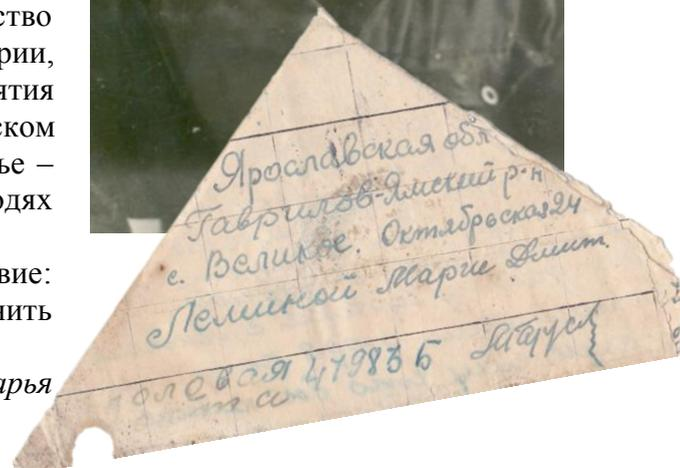 ство
рии,
ятия
ском
ье –
одях
вие:
нить
арья
Ярославская обл
Гаврилов-Ямский р-н
с. Великое. Октябрьская 24
Лемшиной Марие Дмит.
полевая 419835 Б